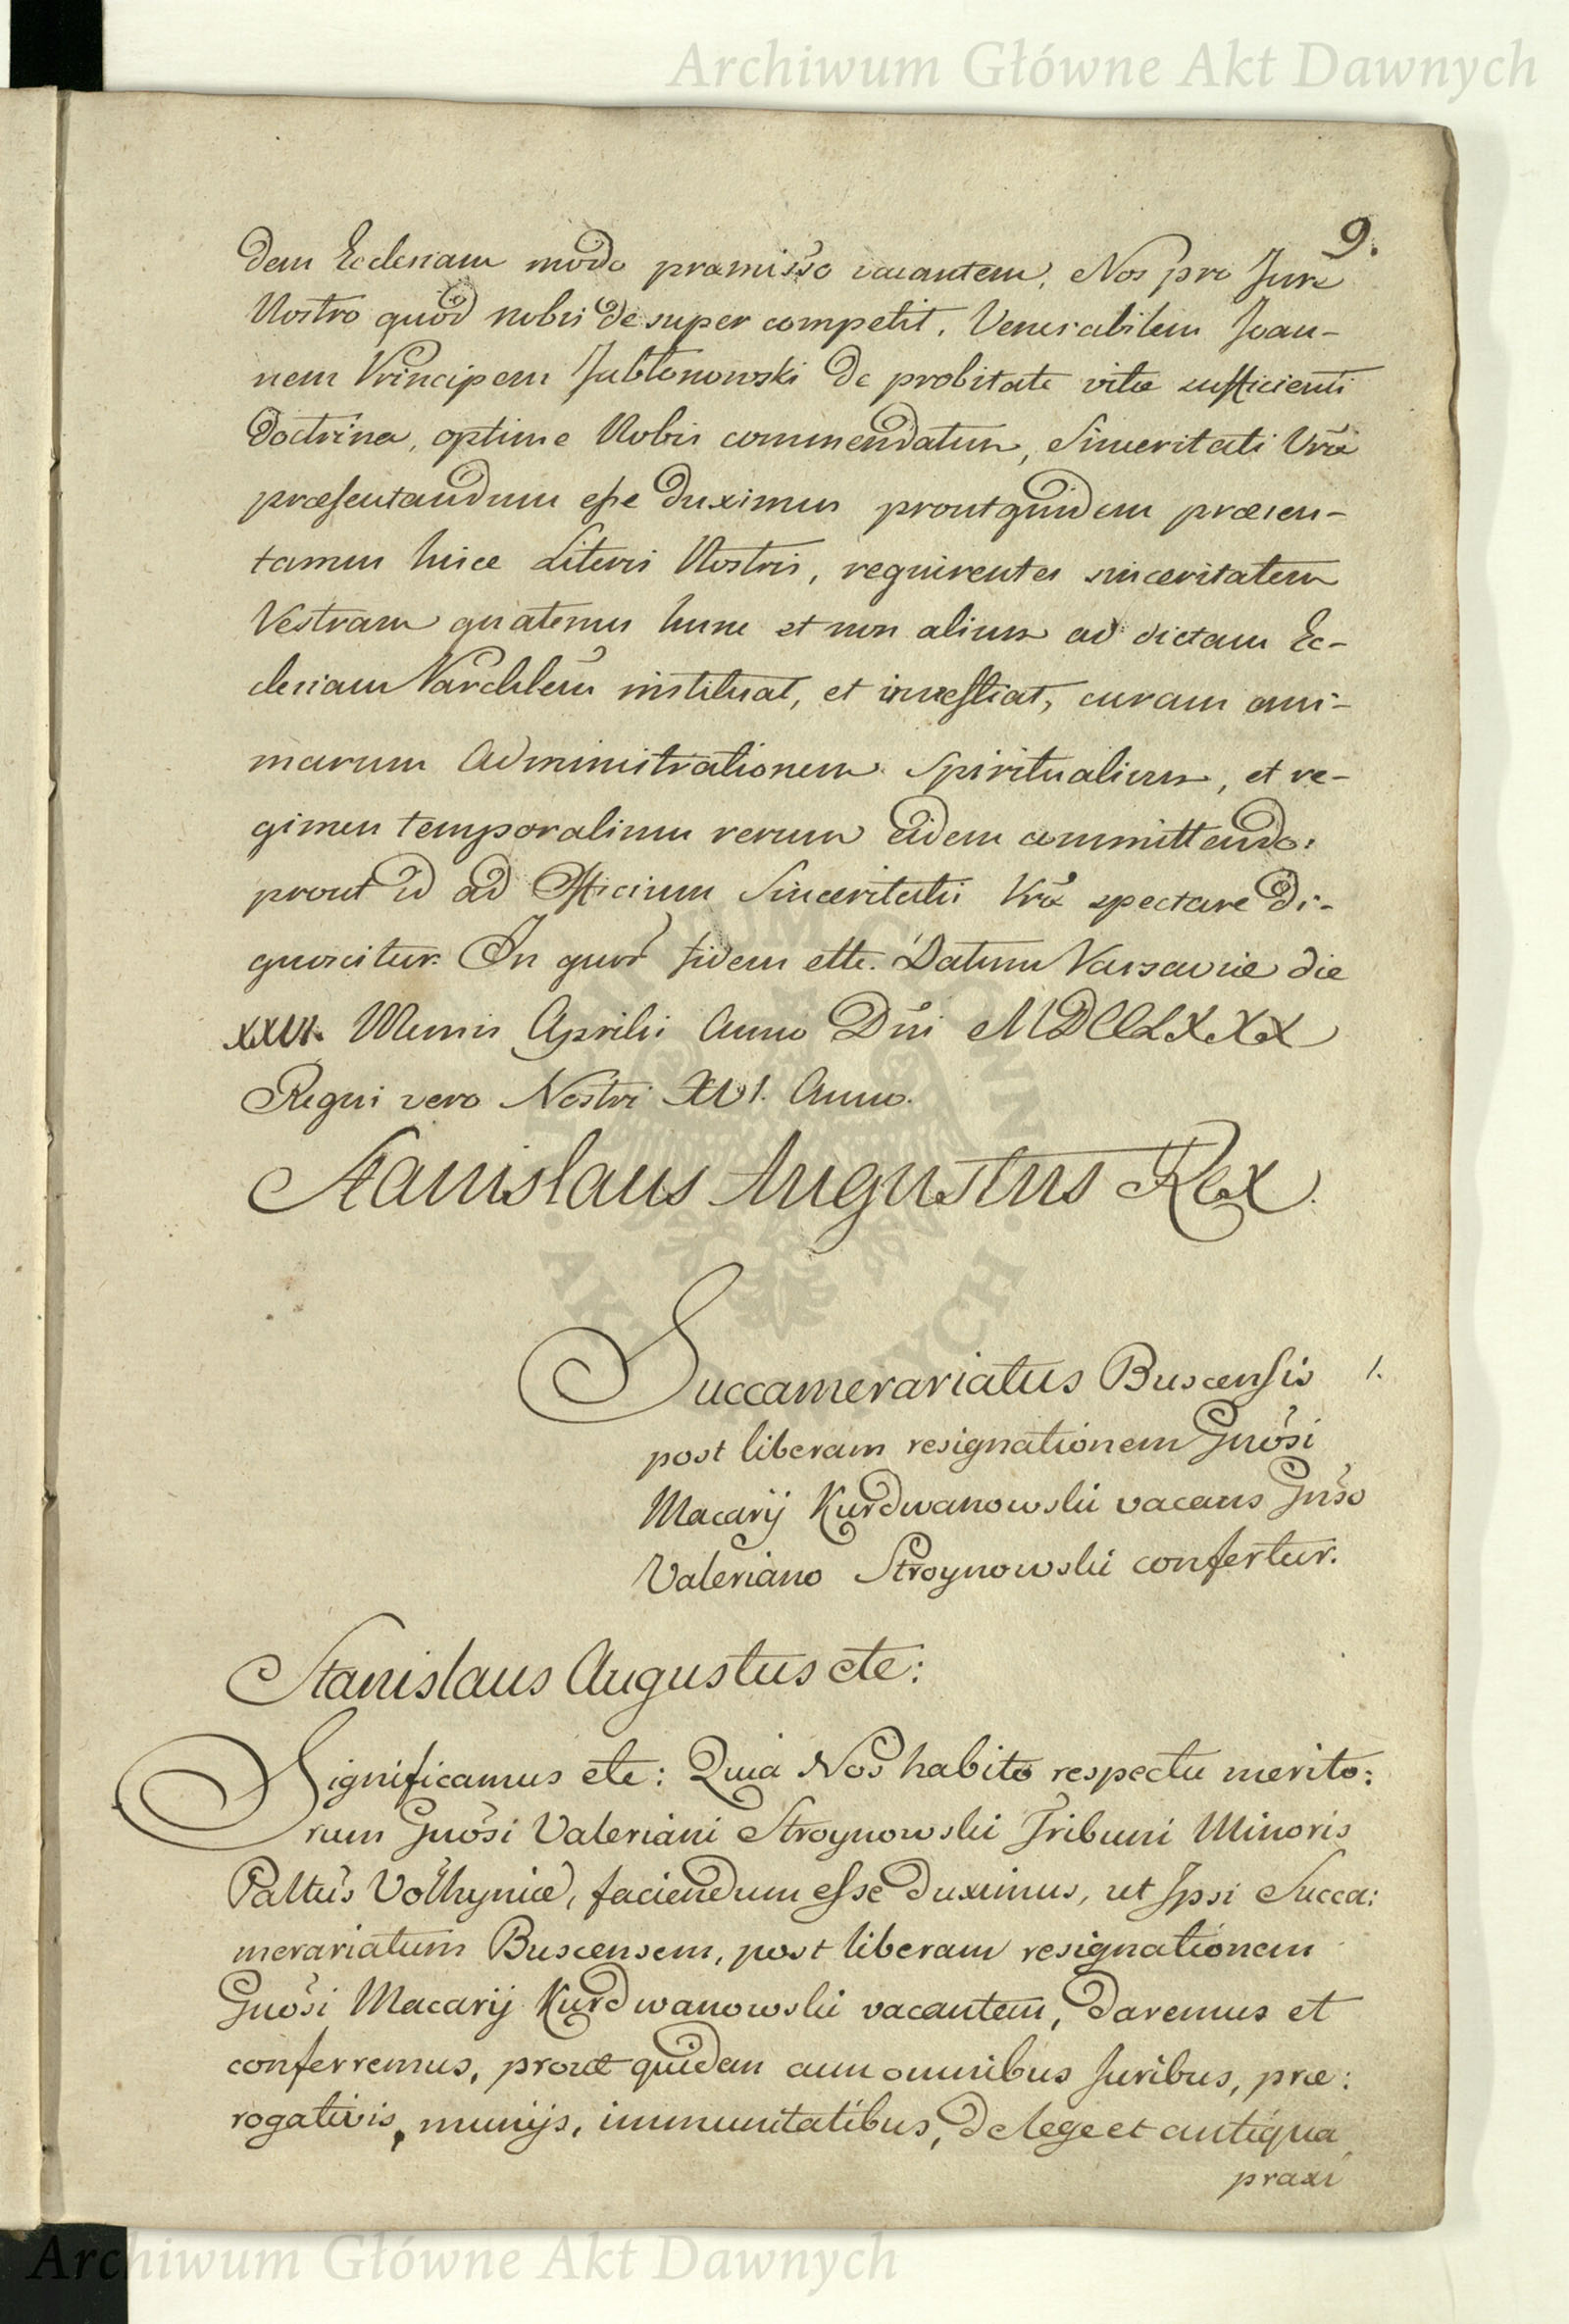 Archiwum Główne Akt Dawnych
9.
dem Ecclesiam modo præmisso vacantem, Nos pro Jure
Nostro quod nobis desuper competit, Venerabilem Joan-
nem Principem Jabłonowski de probitate vitæ sufficienti
doctrina, optime Nobis commendatum, Sinceritati Vrǣ
præsentandum esse duximus proutquidem præsen-
tamus hisce Literis Nostris, requirentes sinceritatem
Vestram quatenus hunc et non alium ad dictam Ec-
clesiam instituat, et investiat, curam ani-
marum Administrationem Spiritualium, et re-
gimen temporalium rerum eidem committendo:
prout id ad Officium Sinceritatis Vrǣ spectare di-
gnoscitur. In quor̃ fidem ettc. Datum Varsaviæ die
XXVI. Mensis Aprilis Anno Dñi MDCCLXXX
Regni vero Nostri XVI. Anno.
Stanislaus Augustus Rex.
Succamerariatus Buscensis 1.
post liberam resignationem Gnosi
Macarij Kurdwanowski vacans Gnso
Valeriano Stroynowski confertur.
Stanislaus Augustus etc:
Significamus etc: Quia Nos habito respectu merito:
rum Gnosi Valeriani Stroynowski Tribuni Minoris
Paltus Volhyniæ, faciendum esse duximus, ut Ipsi Succa:
merariatum Buscensem, post liberam resignationem
Gnosi Macarij Kurdwanowski vacantem, daremus et
conferremus, prout quidem cum omnibus Juribus, præ:
rogativis, munijs, immunitatibus, de lege et antiqua
praxi
Archiwum Główne Akt Dawnych